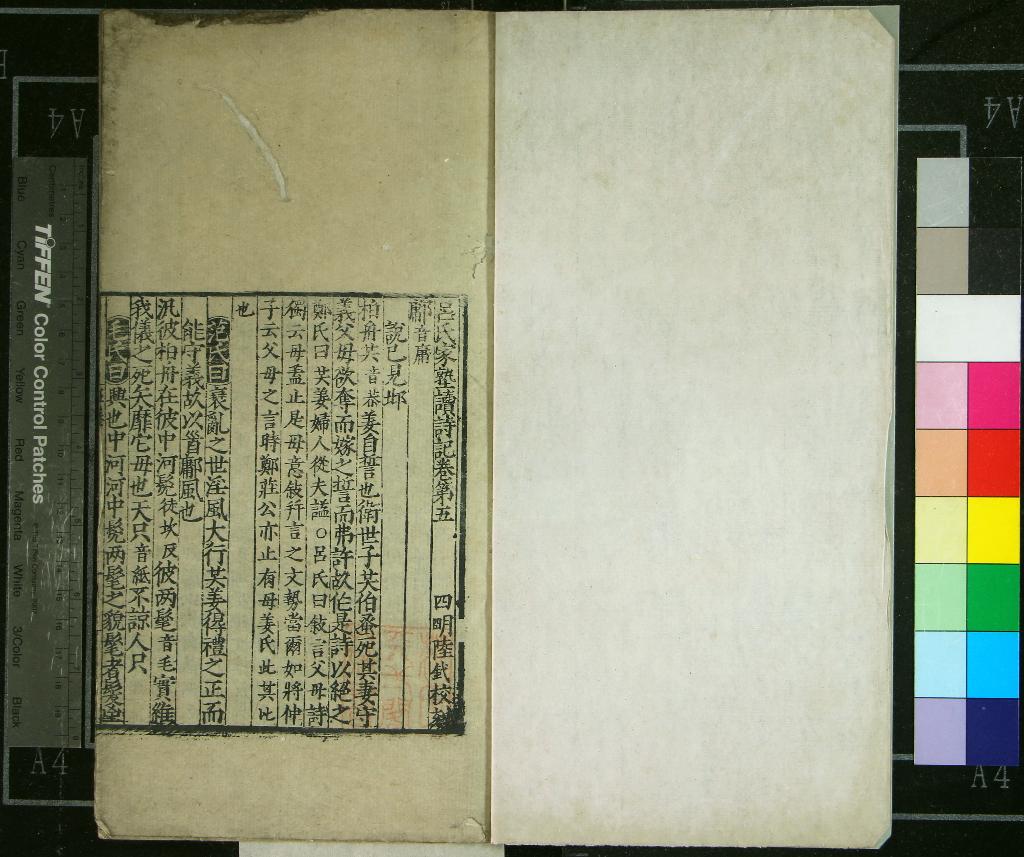 呂氏家塾讀詩記卷第五 四明陸釴校刻
鄘音庸
說已見邶
柏舟共音恭姜自誓也衛世子共伯蚤死其妻守
義父母欲奪而嫁之誓而弗許故作是詩以絕之
鄭氏曰共姜婦人從夫謚○呂氏曰敍言父母詩
獨云母盖止是母意敍并言之文勢當爾如將仲
子云父母之言時鄭莊公亦止有母姜氏此其比
也
范氏曰衰亂之世淫風大行共姜得禮之正而
能守義故以首鄘風也
汎彼柏舟在彼中河髧徒坎反彼两髦音毛實維
我儀之死矢靡它母也天只音紙不諒人只
毛氏曰興也中河河中髧两髦之貌髦者髮至
TIFFEN Color Control Patches
Blue Cyan Green Yellow Red Magenta White 3/Color Black
Centimetres
A4
A4
A4
A4